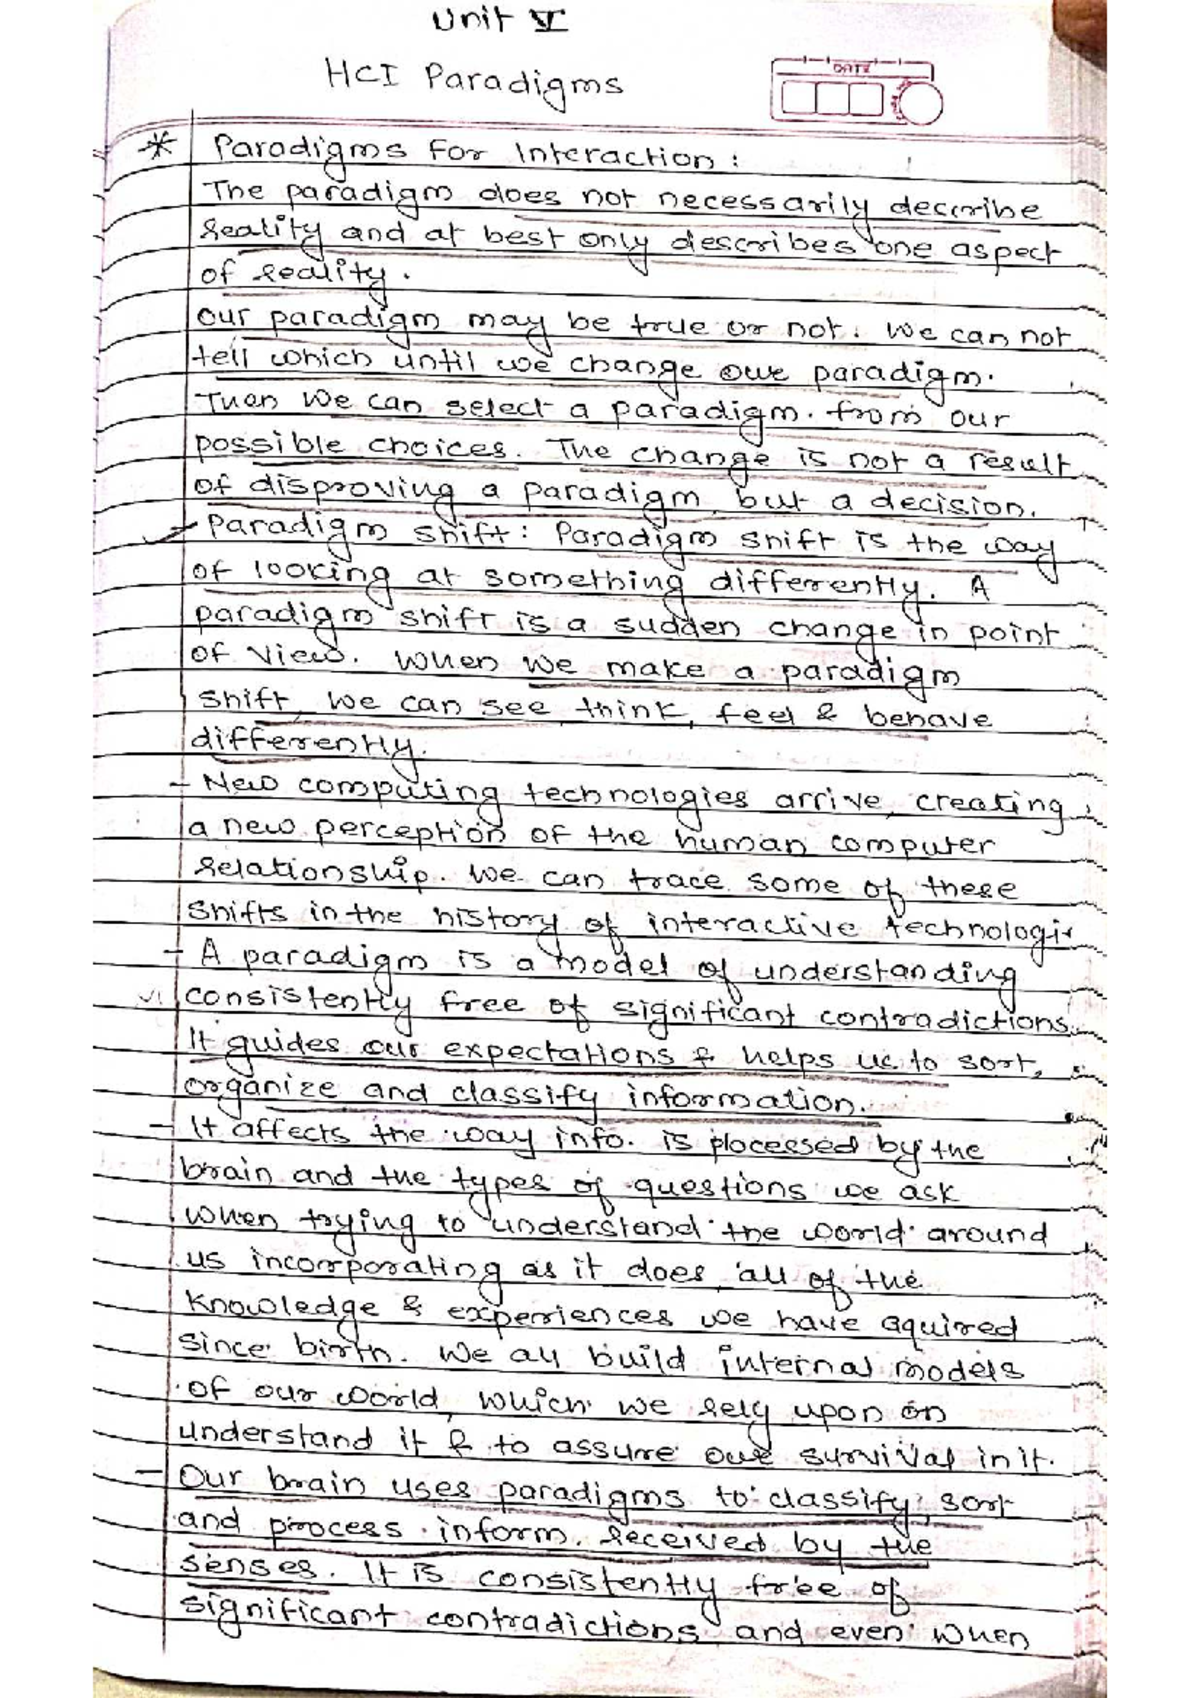 Unit V
HCI Paradigms
DATE
* Paradigms for Interaction:
The paradigm does not necessarily describe
reality and at best only describes one aspect
of reality.
Our paradigm may be true or not. We can not
tell which until we change owe paradigm.
Then we can select a paradigm. from our
possible choices. The change is not a result
of disproving a paradigm, but a decision.
- Paradigm shift: Paradigm shift is the way
of looking at something differently. A
paradigm shift is a sudden change in point
of view. When we make a paradigm
shift, we can see, think, feel & behave
differently.
- New computing technologies arrive, creating
a new perception of the human computer
relationship. We can trace some of these
shifts in the history of interactive technologi
- A paradigm is a model of understanding
consistently free of significant contradictions.
It guides our expectations & helps us to sort,
organize and classify information.
- It affects the way info. is processed by the
brain and the types of questions we ask
when trying to understand the world around
us incorporating as it does, all of the
knowledge & experiences we have aquired
since birth. We all build internal models
of our world, which we rely upon on
understand it & to assure owe survival in it.
- Our brain uses paradigms to classify, sort
and process inform. received by the
senses. It is consistently free of
significant contradictions and even when